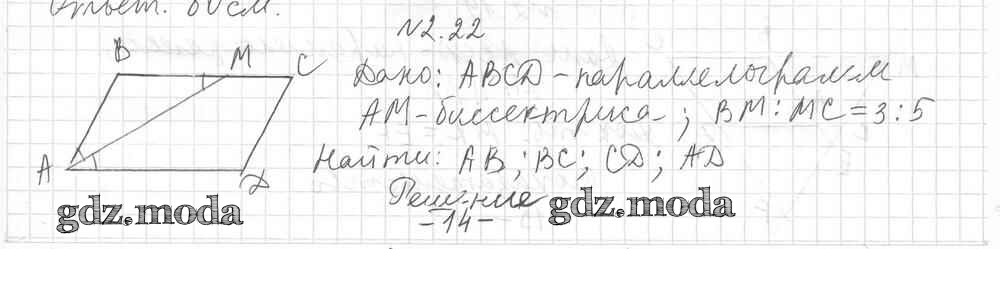 Ответ: 60 см.
№2.22
B M C
Дано: ABCD - параллелограмм
AM - биссектриса; BM : MC = 3 : 5
A D
Найти: AB; BC; CD; AD
Решение
-14-
gdz.moda
gdz.moda